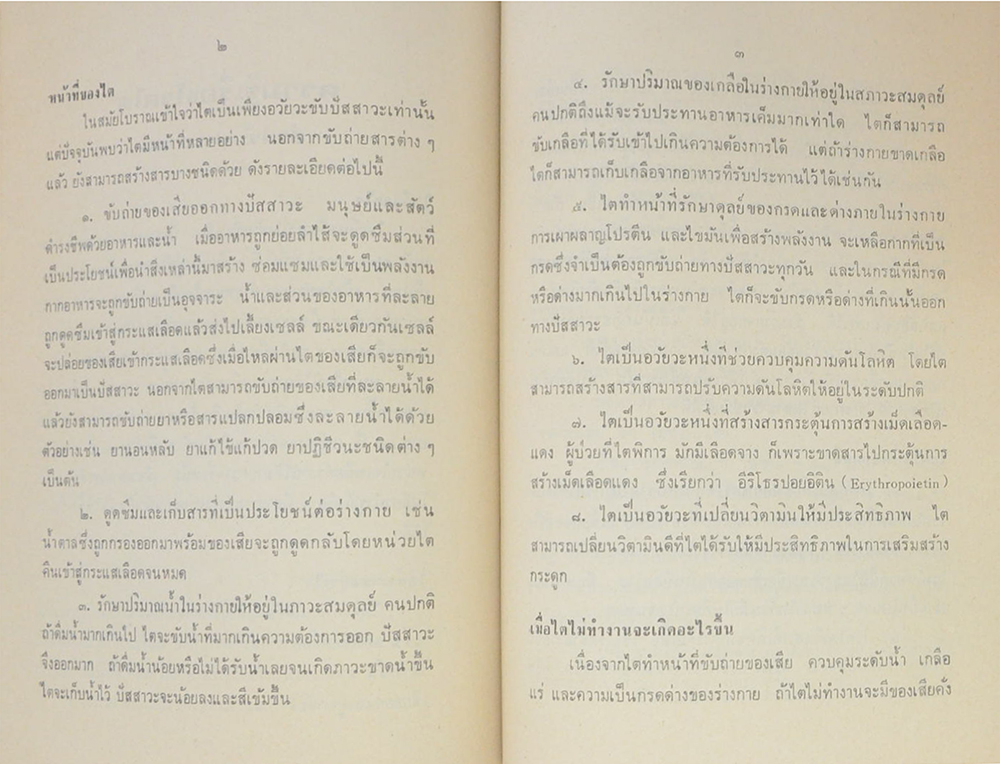 ๒
หน้าที่ของไต
ในสมัยโบราณเข้าใจว่าไตเป็นเพียงอวัยวะขับปัสสาวะเท่านั้น
แต่ปัจจุบันพบว่าไตมีหน้าที่หลายอย่าง นอกจากขับถ่ายสารต่าง ๆ
แล้ว ยังสามารถสร้างสารบางชนิดด้วย ดังรายละเอียดต่อไปนี้
๑. ขับถ่ายของเสียออกทางปัสสาวะ มนุษย์และสัตว์
ดำรงชีพด้วยอาหารและน้ำ เมื่ออาหารถูกย่อยลำไส้จะดูดซึมส่วนที่
เป็นประโยชน์เพื่อนำสิ่งเหล่านี้มาสร้าง ซ่อมแซมและใช้เป็นพลังงาน
กากอาหารจะถูกขับถ่ายเป็นอุจจาระ น้ำและส่วนของอาหารที่ละลาย
ถูกดูดซึมเข้าสู่กระแสเลือดแล้วส่งไปเลี้ยงเซลล์ ขณะเดียวกันเซลล์
จะปล่อยของเสียเข้ากระแสเลือดซึ่งเมื่อไหลผ่านไตของเสียก็จะถูกขับ
ออกมาเป็นปัสสาวะ นอกจากไตสามารถขับถ่ายของเสียที่ละลายน้ำได้
แล้วยังสามารถขับถ่ายยาหรือสารแปลกปลอมซึ่งละลายน้ำได้ด้วย
ตัวอย่างเช่น ยานอนหลับ ยาแก้ไข้แก้ปวด ยาปฏิชีวนะชนิดต่าง ๆ
เป็นต้น
๒. ดูดซึมและเก็บสารที่เป็นประโยชน์ต่อร่างกาย เช่น
น้ำตาลซึ่งถูกกรองออกมาพร้อมของเสียจะถูกดูดกลับโดยหน่วยไต
คืนเข้าสู่กระแสเลือดจนหมด
๓. รักษาปริมาณน้ำในร่างกายให้อยู่ในภาวะสมดุลย์ คนปกติ
ถ้าดื่มน้ำมากเกินไป ไตจะขับน้ำที่มากเกินความต้องการออก ปัสสาวะ
จึงออกมาก ถ้าดื่มน้ำน้อยหรือไม่ได้รับน้ำเลยจนเกิดภาวะขาดน้ำขึ้น
ไตจะเก็บน้ำไว้ ปัสสาวะจะน้อยลงและสีเข้มขึ้น
๓
๔. รักษาปริมาณของเกลือในร่างกายให้อยู่ในสภาวะสมดุลย์
คนปกติถึงแม้จะรับประทานอาหารเค็มมากเท่าใด ไตก็สามารถ
ขับเกลือที่ได้รับเข้าไปเกินความต้องการได้ แต่ถ้าร่างกายขาดเกลือ
ไตก็สามารถเก็บเกลือจากอาหารที่รับประทานไว้ได้เช่นกัน
๕. ไตทำหน้าที่รักษาดุลย์ของกรดและด่างภายในร่างกาย
การเผาผลาญโปรตีน และไขมันเพื่อสร้างพลังงาน จะเหลือกากที่เป็น
กรดซึ่งจำเป็นต้องถูกขับถ่ายทางปัสสาวะทุกวัน และในกรณีที่มีกรด
หรือด่างมากเกินไปในร่างกาย ไตก็จะขับกรดหรือด่างที่เกินนั้นออก
ทางปัสสาวะ
๖. ไตเป็นอวัยวะหนึ่งที่ช่วยควบคุมความดันโลหิต โดยไต
สามารถสร้างสารที่สามารถปรับความดันโลหิตให้อยู่ในระดับปกติ
๗. ไตเป็นอวัยวะหนึ่งที่สร้างสารกระตุ้นการสร้างเม็ดเลือด-
แดง ผู้ป่วยที่ไตพิการ มักมีเลือดจาง ก็เพราะขาดสารไปกระตุ้นการ
สร้างเม็ดเลือดแดง ซึ่งเรียกว่า อีริโธรปอยอิติน (Erythropoietin)
๘. ไตเป็นอวัยวะที่เปลี่ยนวิตามินให้มีประสิทธิภาพ ไต
สามารถเปลี่ยนวิตามินดีที่ไตได้รับให้มีประสิทธิภาพในการเสริมสร้าง
กระดูก
เมื่อไตไม่ทำงานจะเกิดอะไรขึ้น
เนื่องจากไตทำหน้าที่ขับถ่ายของเสีย ควบคุมระดับน้ำ เกลือ
แร่ และความเป็นกรดด่างของร่างกาย ถ้าไตไม่ทำงานจะมีของเสียคั่ง